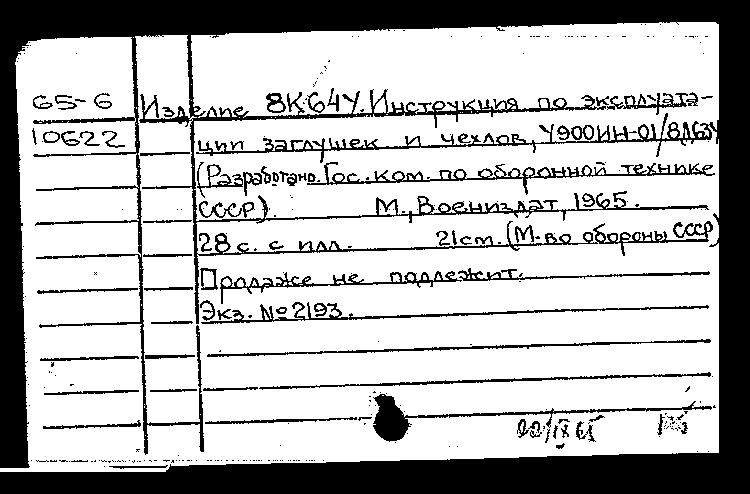 65-6 Изделие 8К64У. Инструкция по эксплуата-
10622 ции заглушек и чехлов, У900ИН-01/8Д63У
(Разработано Гос. ком. по оборонной технике
СССР). М., Воениздат, 1965.
28 с. с илл. 21 см. (М-во обороны СССР)
Продаже не подлежит.
Экз. № 2193.